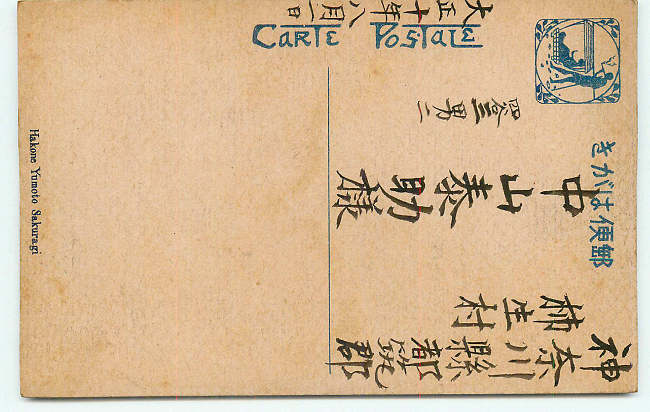 郵便はがき
神奈川縣都筑郡
柿生村
中山泰助様
大正十年八月一日
CARTE POSTALE
Hakone Yumoto Sakuragi